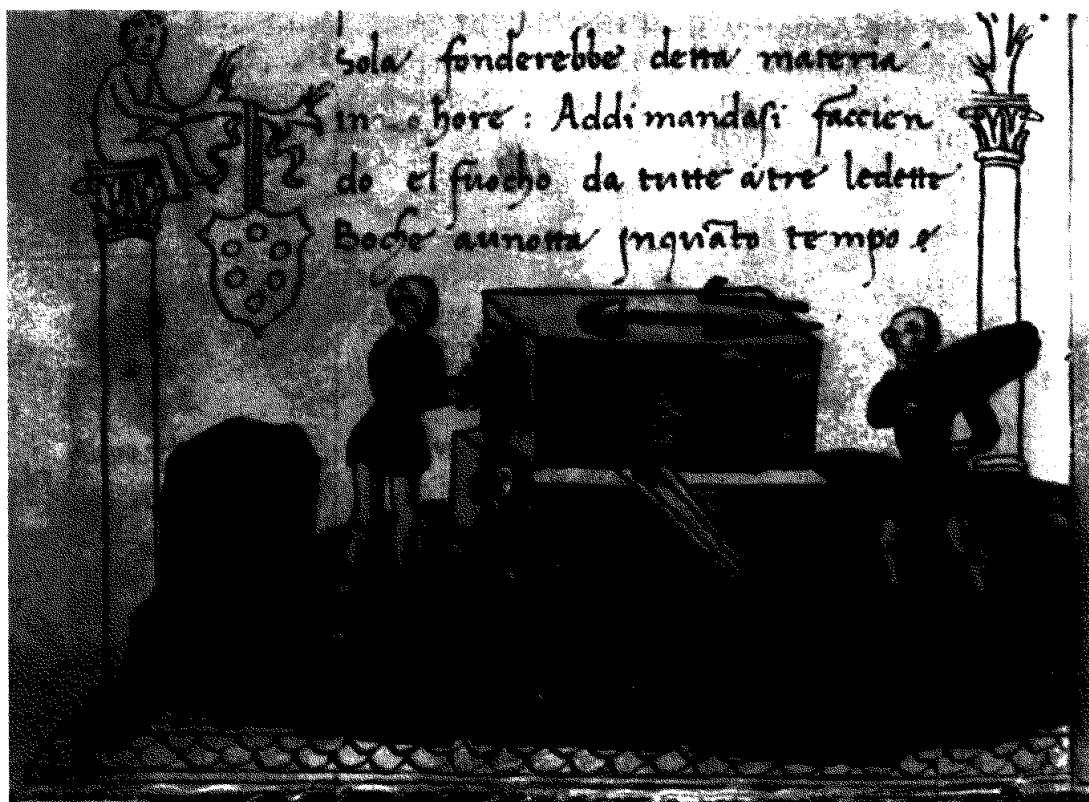 Sola fonderebbe detta materia
in hore : Addimandasi faccien
do el fuocho da tutte átre ledette
Boche aunotta inquāto tempo e